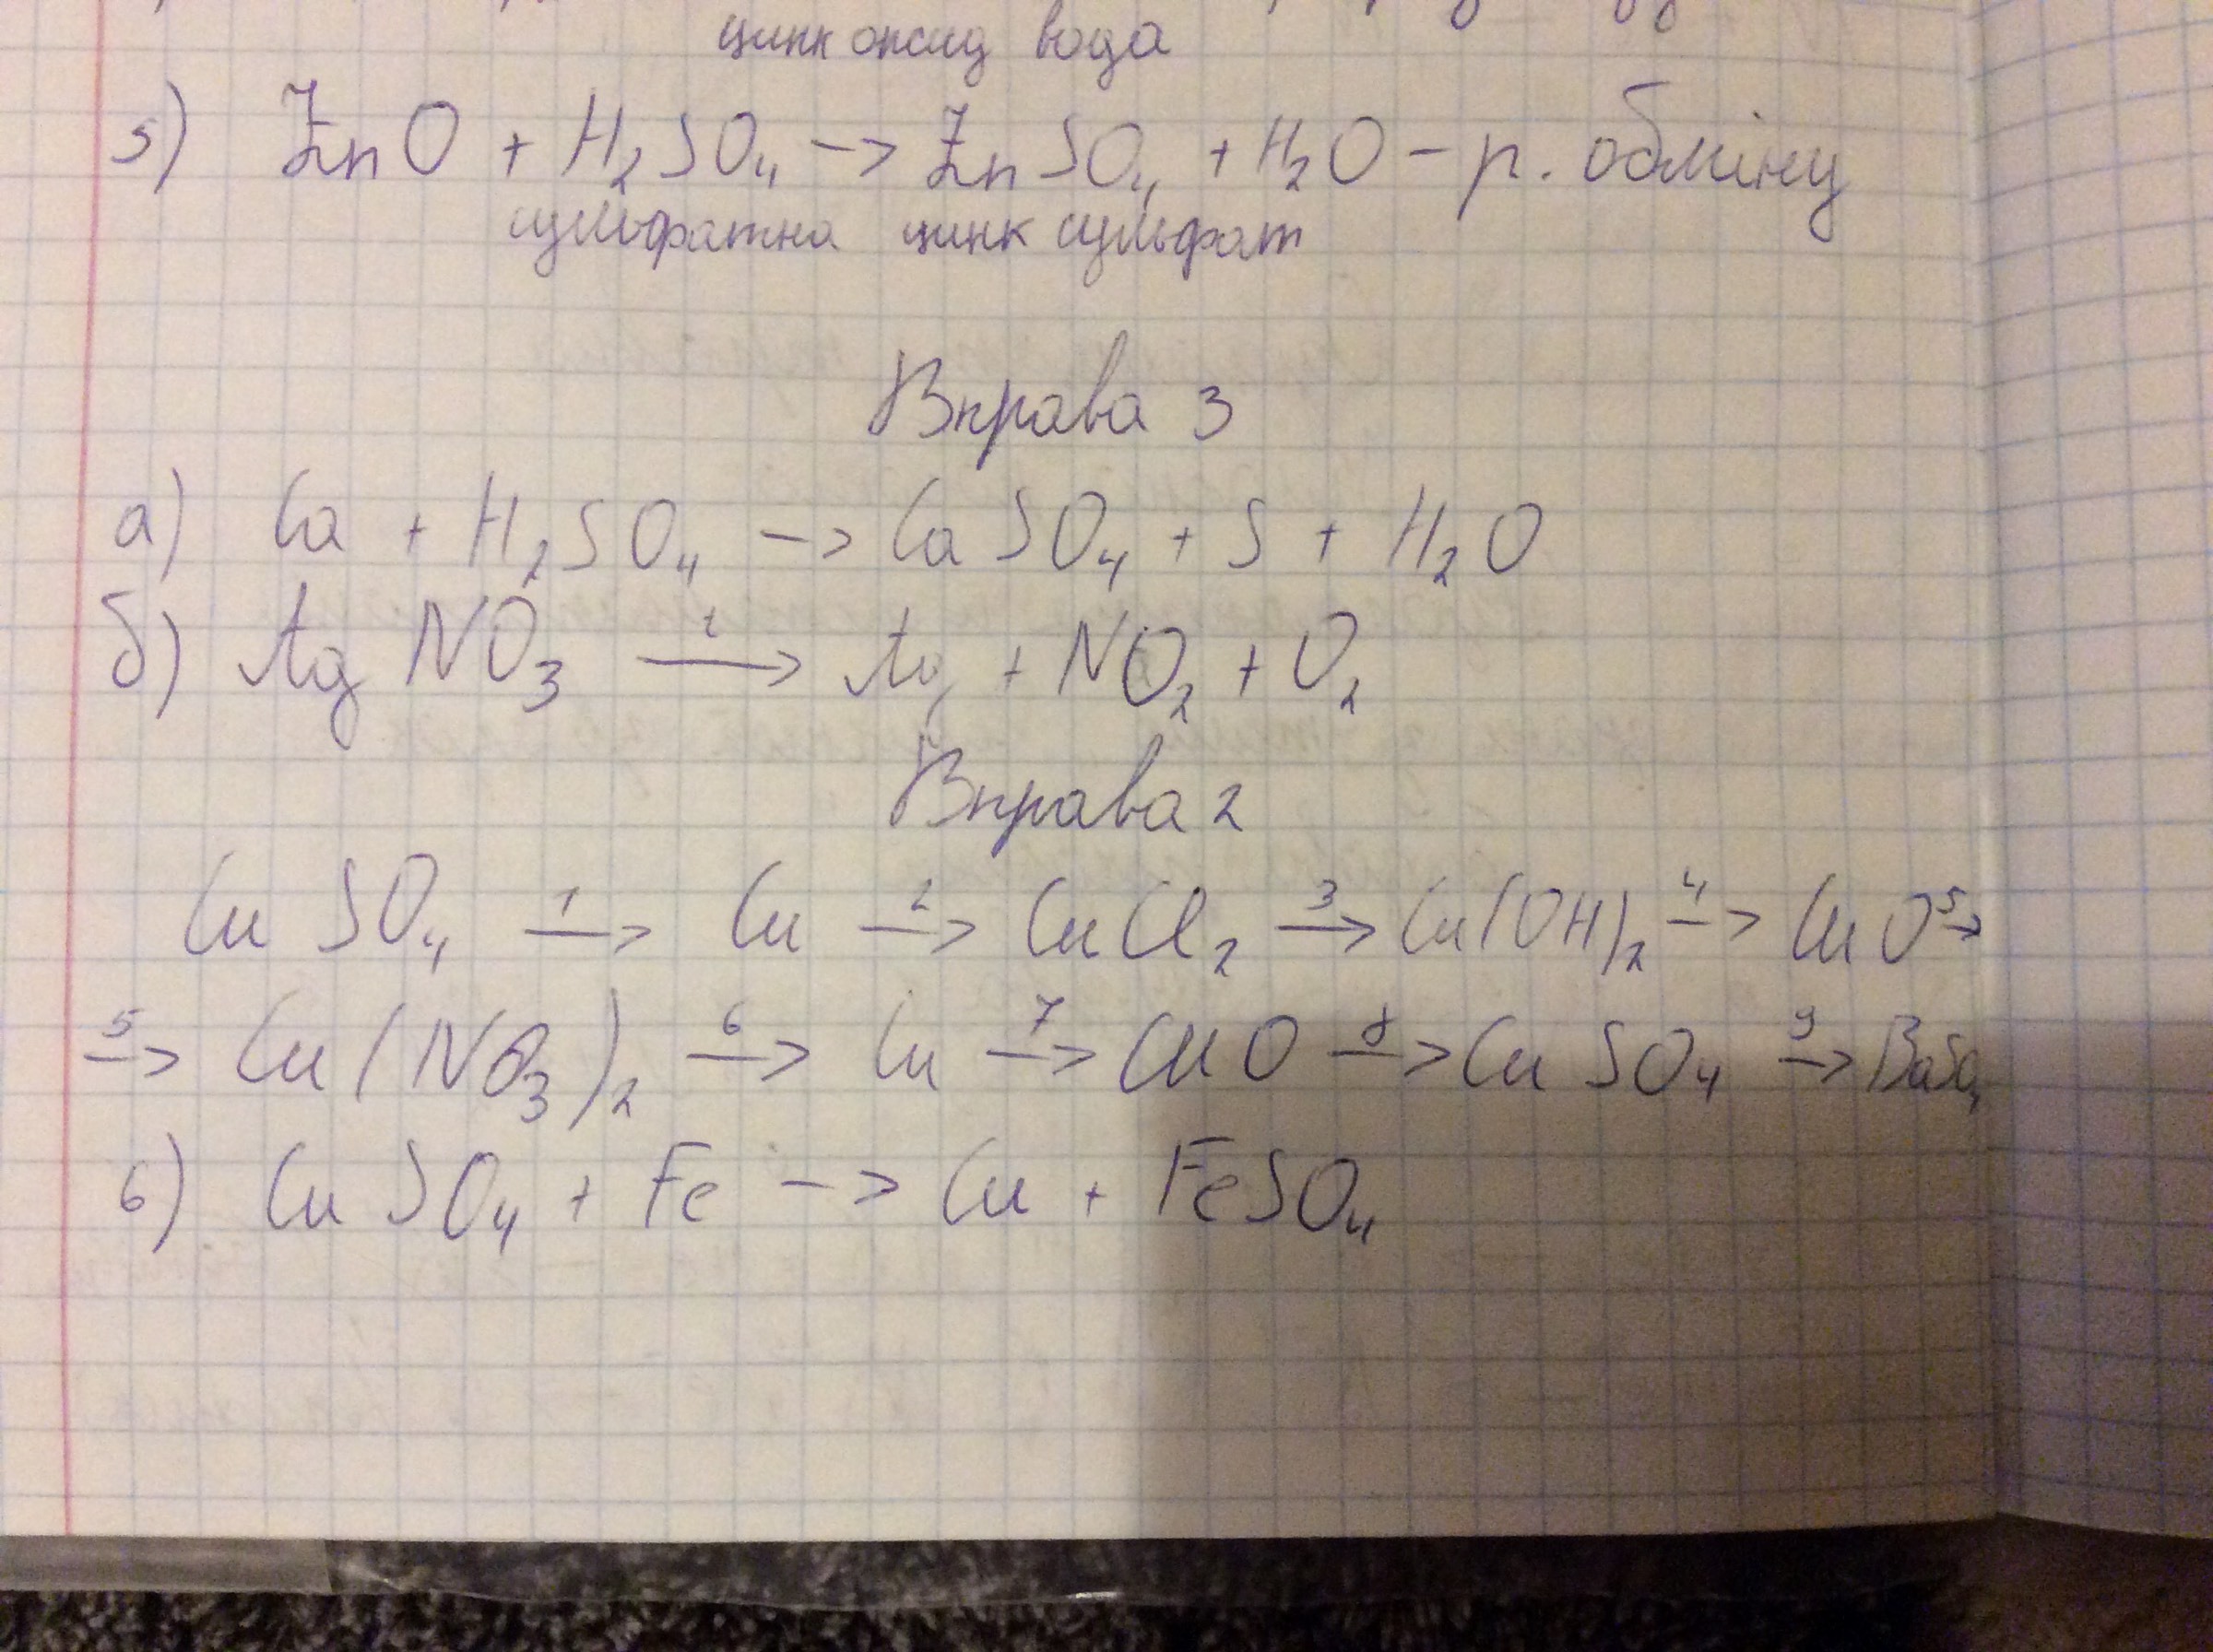 цинк оксид вода
5) ZnO + H₂SO₄ -> ZnSO₄ + H₂O - р. обміну
сульфатна цинк сульфат
Вправа 3
а) Ca + H₂SO₄ -> CaSO₄ + S + H₂O
б) AgNO₃ -t-> Ag + NO₂ + O₂
Вправа 2
CuSO₄ -1-> Cu -2-> CuCl₂ -3-> Cu(OH)₂ -4-> CuO -5->
-5-> Cu(NO₃)₂ -6-> Cu -7-> CuO -8-> CuSO₄ -9-> BaSO₄
6) CuSO₄ + Fe -> Cu + FeSO₄